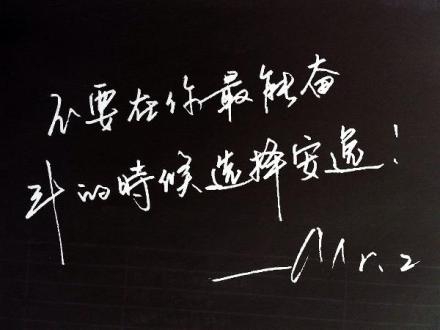 不要在你最能奋
斗的時候选择安逸!
—Mr.2